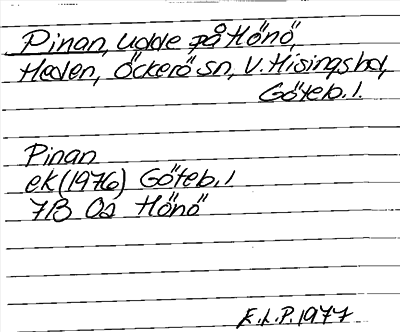 Pinan, udde på Hönö,
Heden, Öckerö sn, V. Hisings hd,
Göteb. l.
Pinan
ek (1976) Göteb. l
7B 0a Hönö
E.L.P. 1977